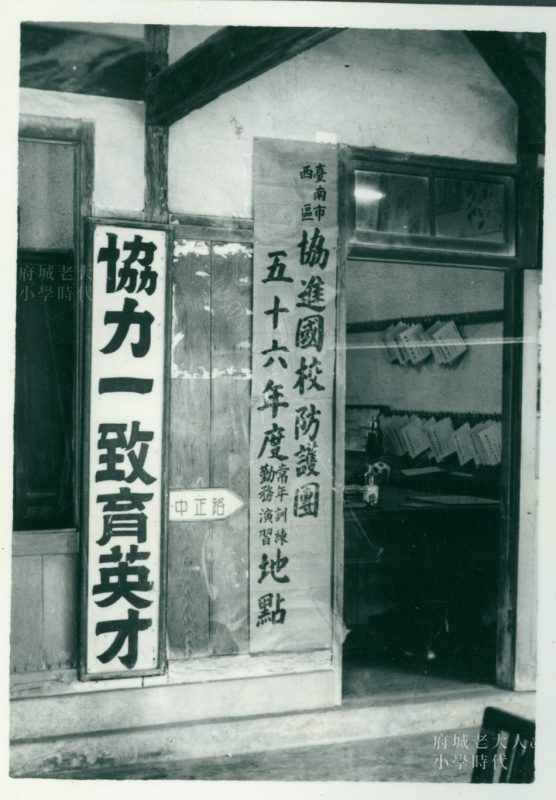 臺南市
西區
協進國校防護團
五十六年度
常年訓練
勤務演習
地點
協力一致育英才
中正路
府城老大
小學時代
府城老大人
小學時代